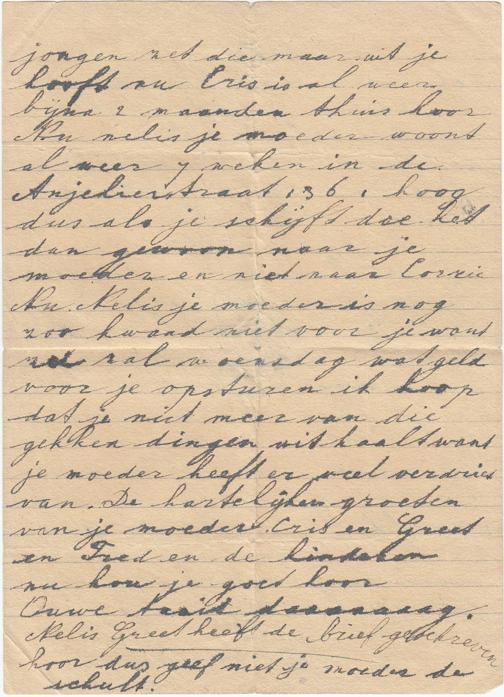 jongen zet die maar uit je
hooft nu Cris is al weer
bijna 2 maanden thuis hoor
Nu nelis je moeder woont
al weer 7 weken in de
Anjelierstraat 136 1 hoog
dus als je schijft doe het
dan gewoon naar je
moeder en niet naar Corrie
Nu Nelis je moeder is nog
zoo kwaad niet voor je want
ze zal woensdag wat geld
voor je opsturen ik hoop
dat je niet meer van die
gekken dingen uithaalt want
je moeder heeft er veel verdriet
van. De hartelijken groeten
van je moeder Cris en Greet
en Fred en de kinderen
nu hou je goet hoor
Ouwe daaaaaag.
Nelis Greet heeft de brief geschreven
hoor dus geef niet je moeder de
schult.